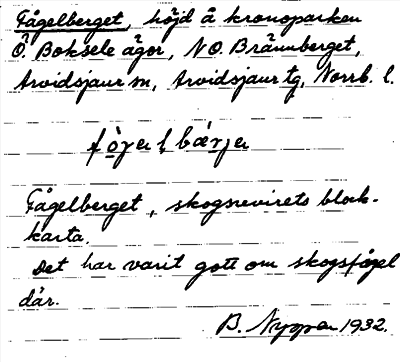 Fågelberget, höjd å kronoparken
Ö. Boksele ägor, NO. Brännberget,
Arvidsjaur sn, Arvidsjaur tg, Norrb. l.
Fågelberget, skogsrevirets block-
karta.
Det har varit gott om skogsfågel
där.
B. 1932.